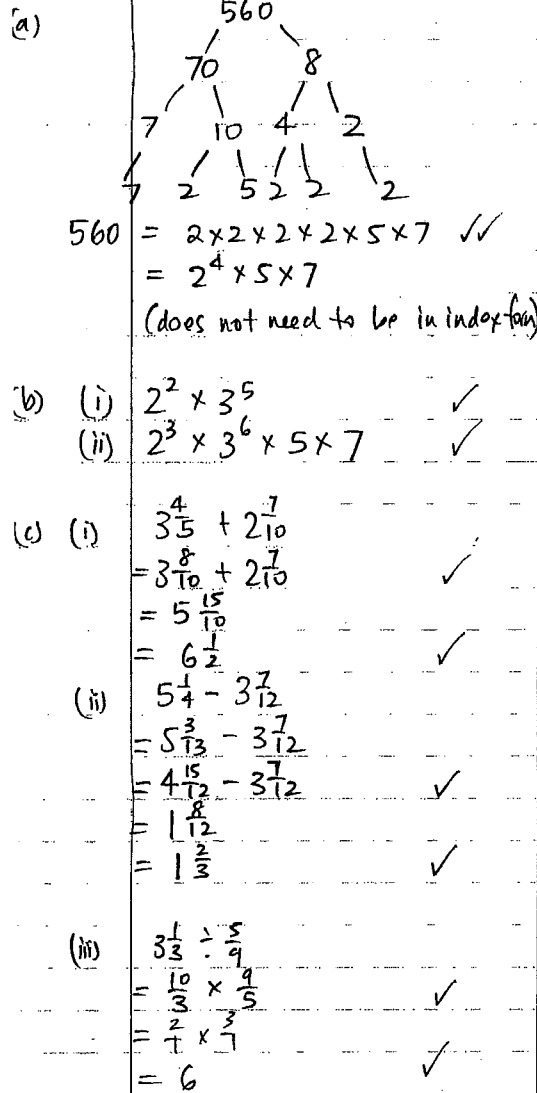 (a) 560
70 8
7 10 4 2
7 2 5 2 2 2
560 = 2×2×2×2×5×7 ✓✓
= 2⁴ × 5 × 7
(does not need to be in index form)
(b) (i) 2² × 3⁵ ✓
(ii) 2³ × 3⁶ × 5 × 7 ✓
(c) (i) 3 4/5 + 2 7/10
= 3 8/10 + 2 7/10 ✓
= 5 15/10
= 6 1/2 ✓
(ii) 5 1/4 - 3 7/12
= 5 3/13 - 3 7/12
= 4 15/12 - 3 7/12 ✓
= 1 8/12
= 1 2/3 ✓
(iii) 3 1/3 ÷ 5/9
= 10/3 × 9/5 ✓
= 2/1 × 3/1
= 6 ✓